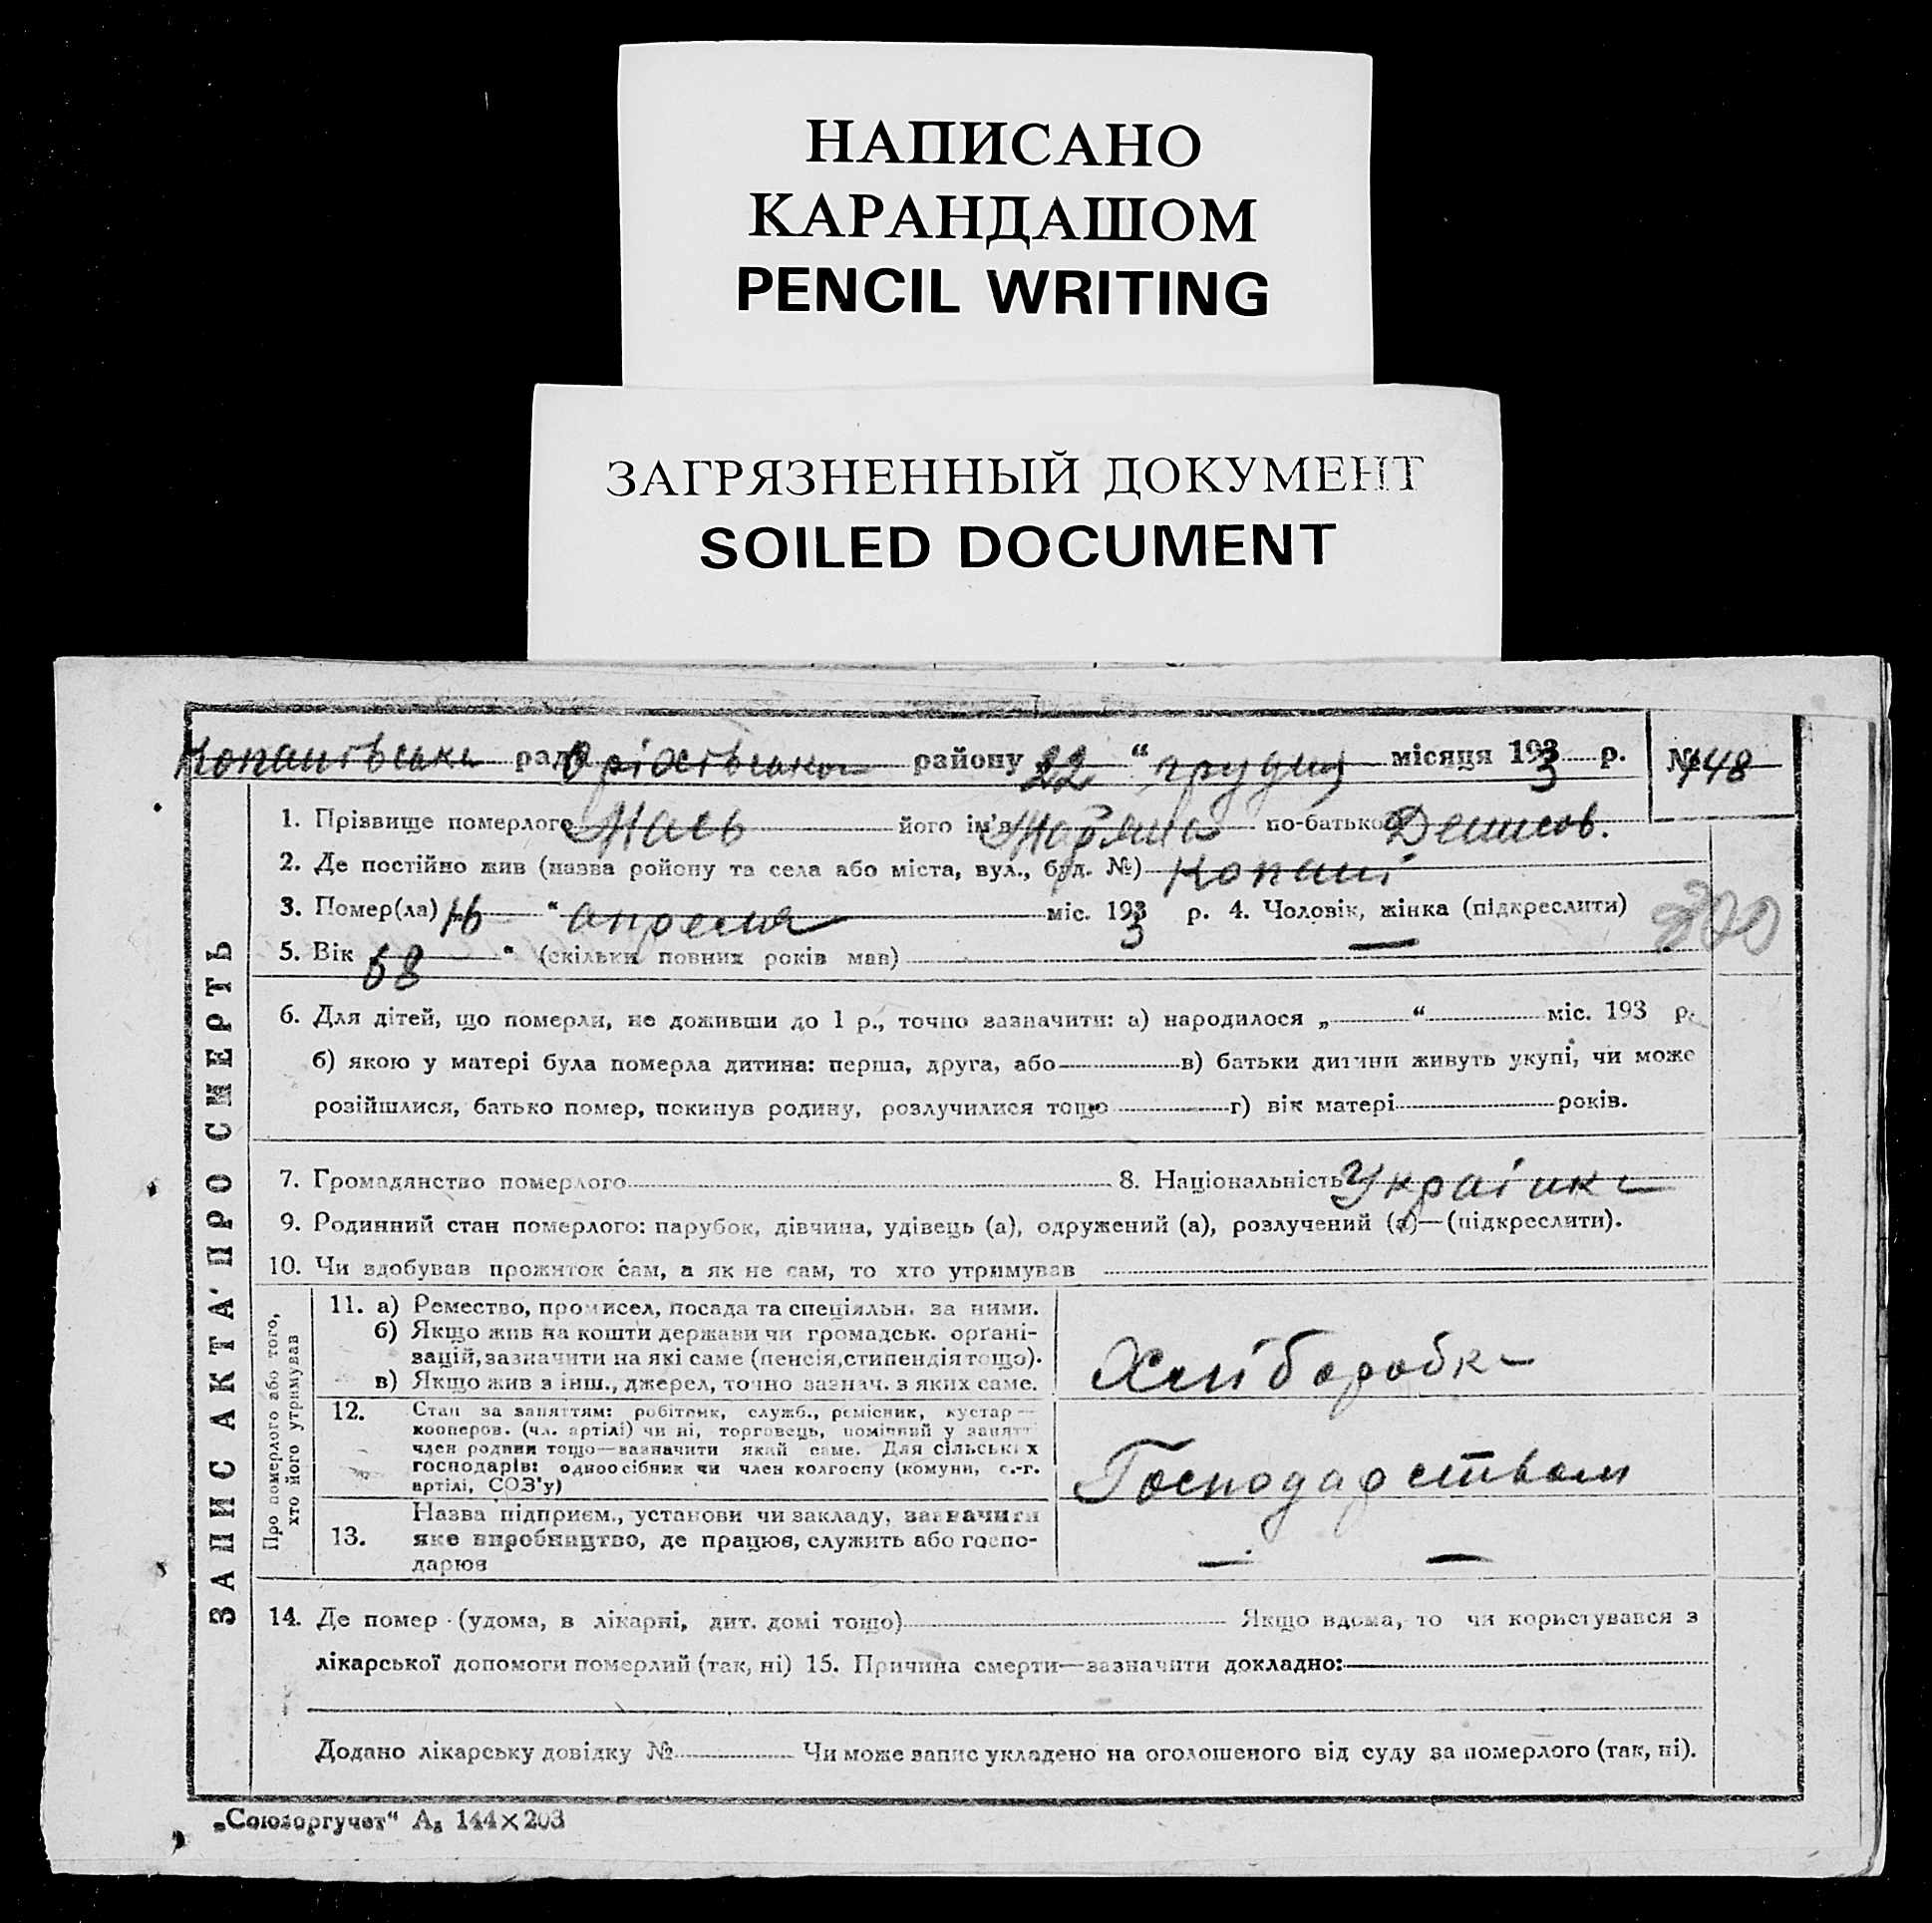 НАПИСАНО
КАРАНДАШОМ
PENCIL WRITING
ЗАГРЯЗНЕННЫЙ ДОКУМЕНТ
SOILED DOCUMENT
Копанівська рада Оріхівського району 22 “ грудня місяця 1933 р. № 148
ЗАПИС АКТА ПРО СМЕРТЬ
1. Прізвище померлого Мась його ім'я по-батькові Денисов.
2. Де постійно жив (назва району та села або міста, вул., буд. №) Копані
3. Помер(ла) 16 “ апреля міс. 1933 р. 4. Чоловік, жінка (підкреслити)
5. Вік 68 “ (скільки повних років мав)
6. Для дітей, що померли, не доживши до 1 р., точно зазначити: а) народилося „ “ міс. 193 р.
б) якою у матері була померла дитина: перша, друга, або в) батьки дитини живуть укупі, чи може
розійшлися, батько помер, покинув родину, розлучилися тощо г) вік матері років.
7. Громадянство померлого 8. Національність Українка
9. Родинний стан померлого: парубок, дівчина, удівець (а), одружений (а), розлучений (а)—(підкреслити).
10. Чи здобував прожиток сам, а як не сам, то хто утримував
Про померлого або того, хто його утримував
11. а) Ремество, промисел, посада та спеціяльн. за ними.
б) Якщо жив на кошти держави чи громадськ. органі-
зацій, зазначити на які саме (пенсія, стипендія тощо).
в) Якщо жив з інш., джерел, точно зазнач. з яких саме.
Хліборобка
12. Стан за заняттям: робітник, служб., ремісник, кустар—
кооперов. (чл. артілі) чи ні, торговець, помічний у занятт
член родини тощо—зазначити який саме. Для сільських
господарів: одноосібник чи член колгоспу (комуни, с.-г.
артілі, СОЗ'у)
Господарством
13. Назва підприєм., установи чи закладу, зазначити
яке виробництво, де працює, служить або госпо-
дарює
— —
14. Де помер (удома, в лікарні, дит. домі тощо) Якщо вдома, то чи користувався з
лікарської допомоги померлий (так, ні) 15. Причина смерти—зазначити докладно:
Додано лікарську довідку № Чи може запис укладено на оголошеного від суду за померлого (так, ні).
„Союзоргучет“ А₅ 144×203